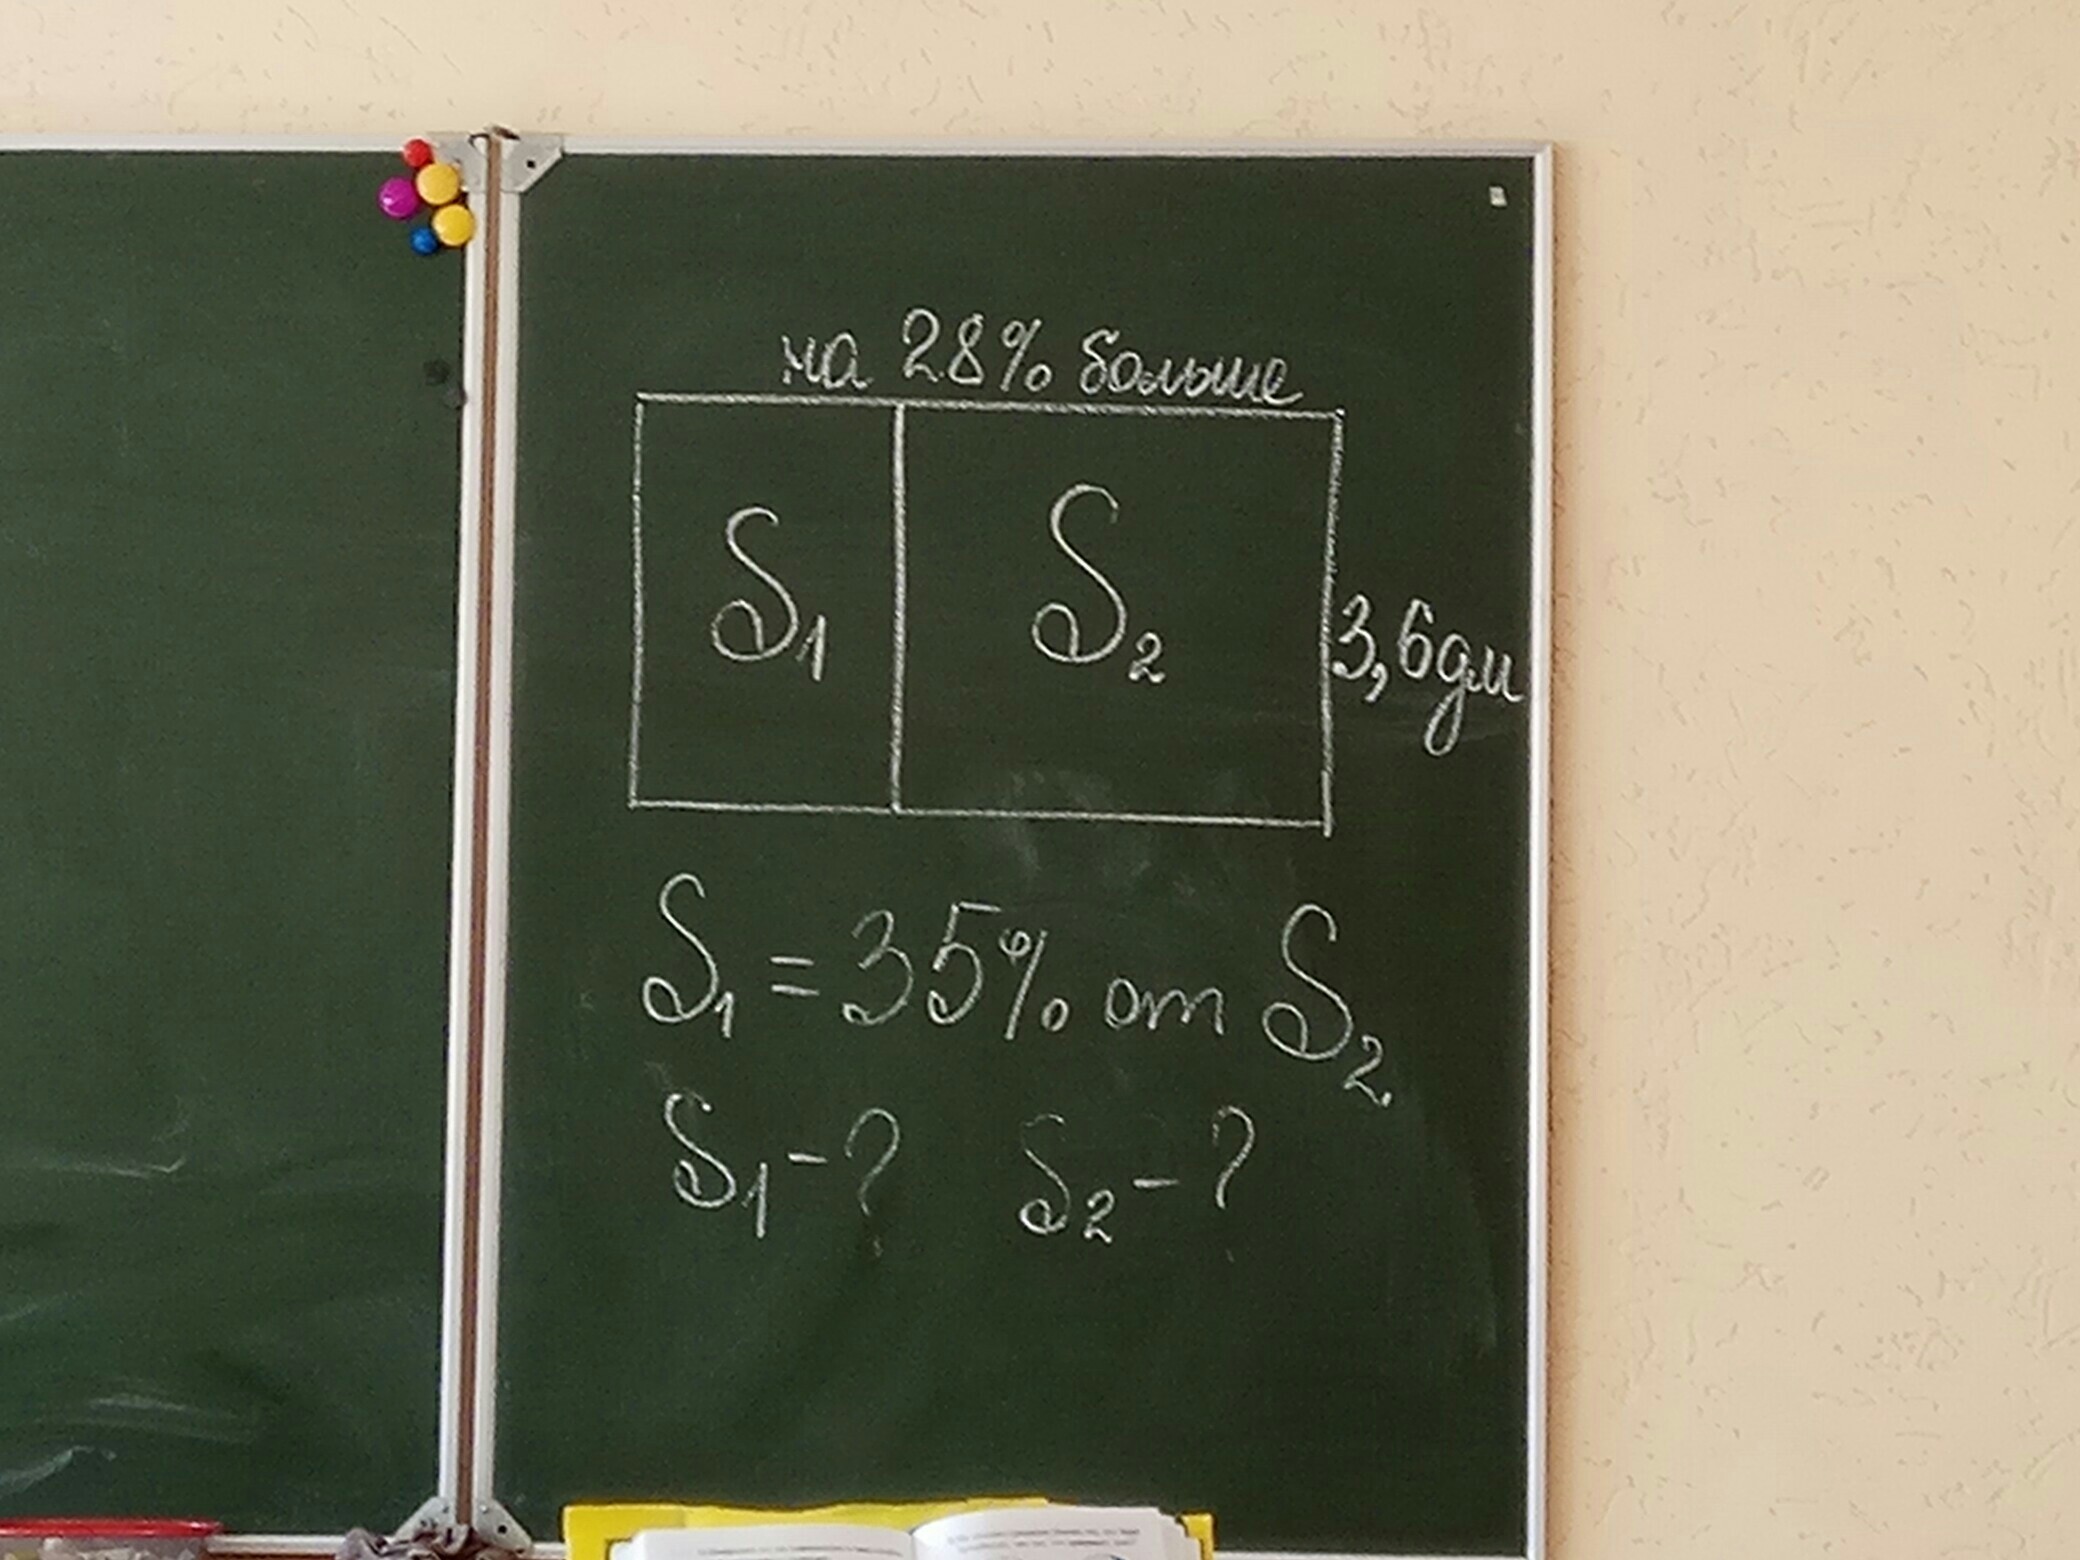 на 28% больше
S₁ S₂
3,6дм
S₁ = 35% от S₂
S₁ - ? S₂ - ?